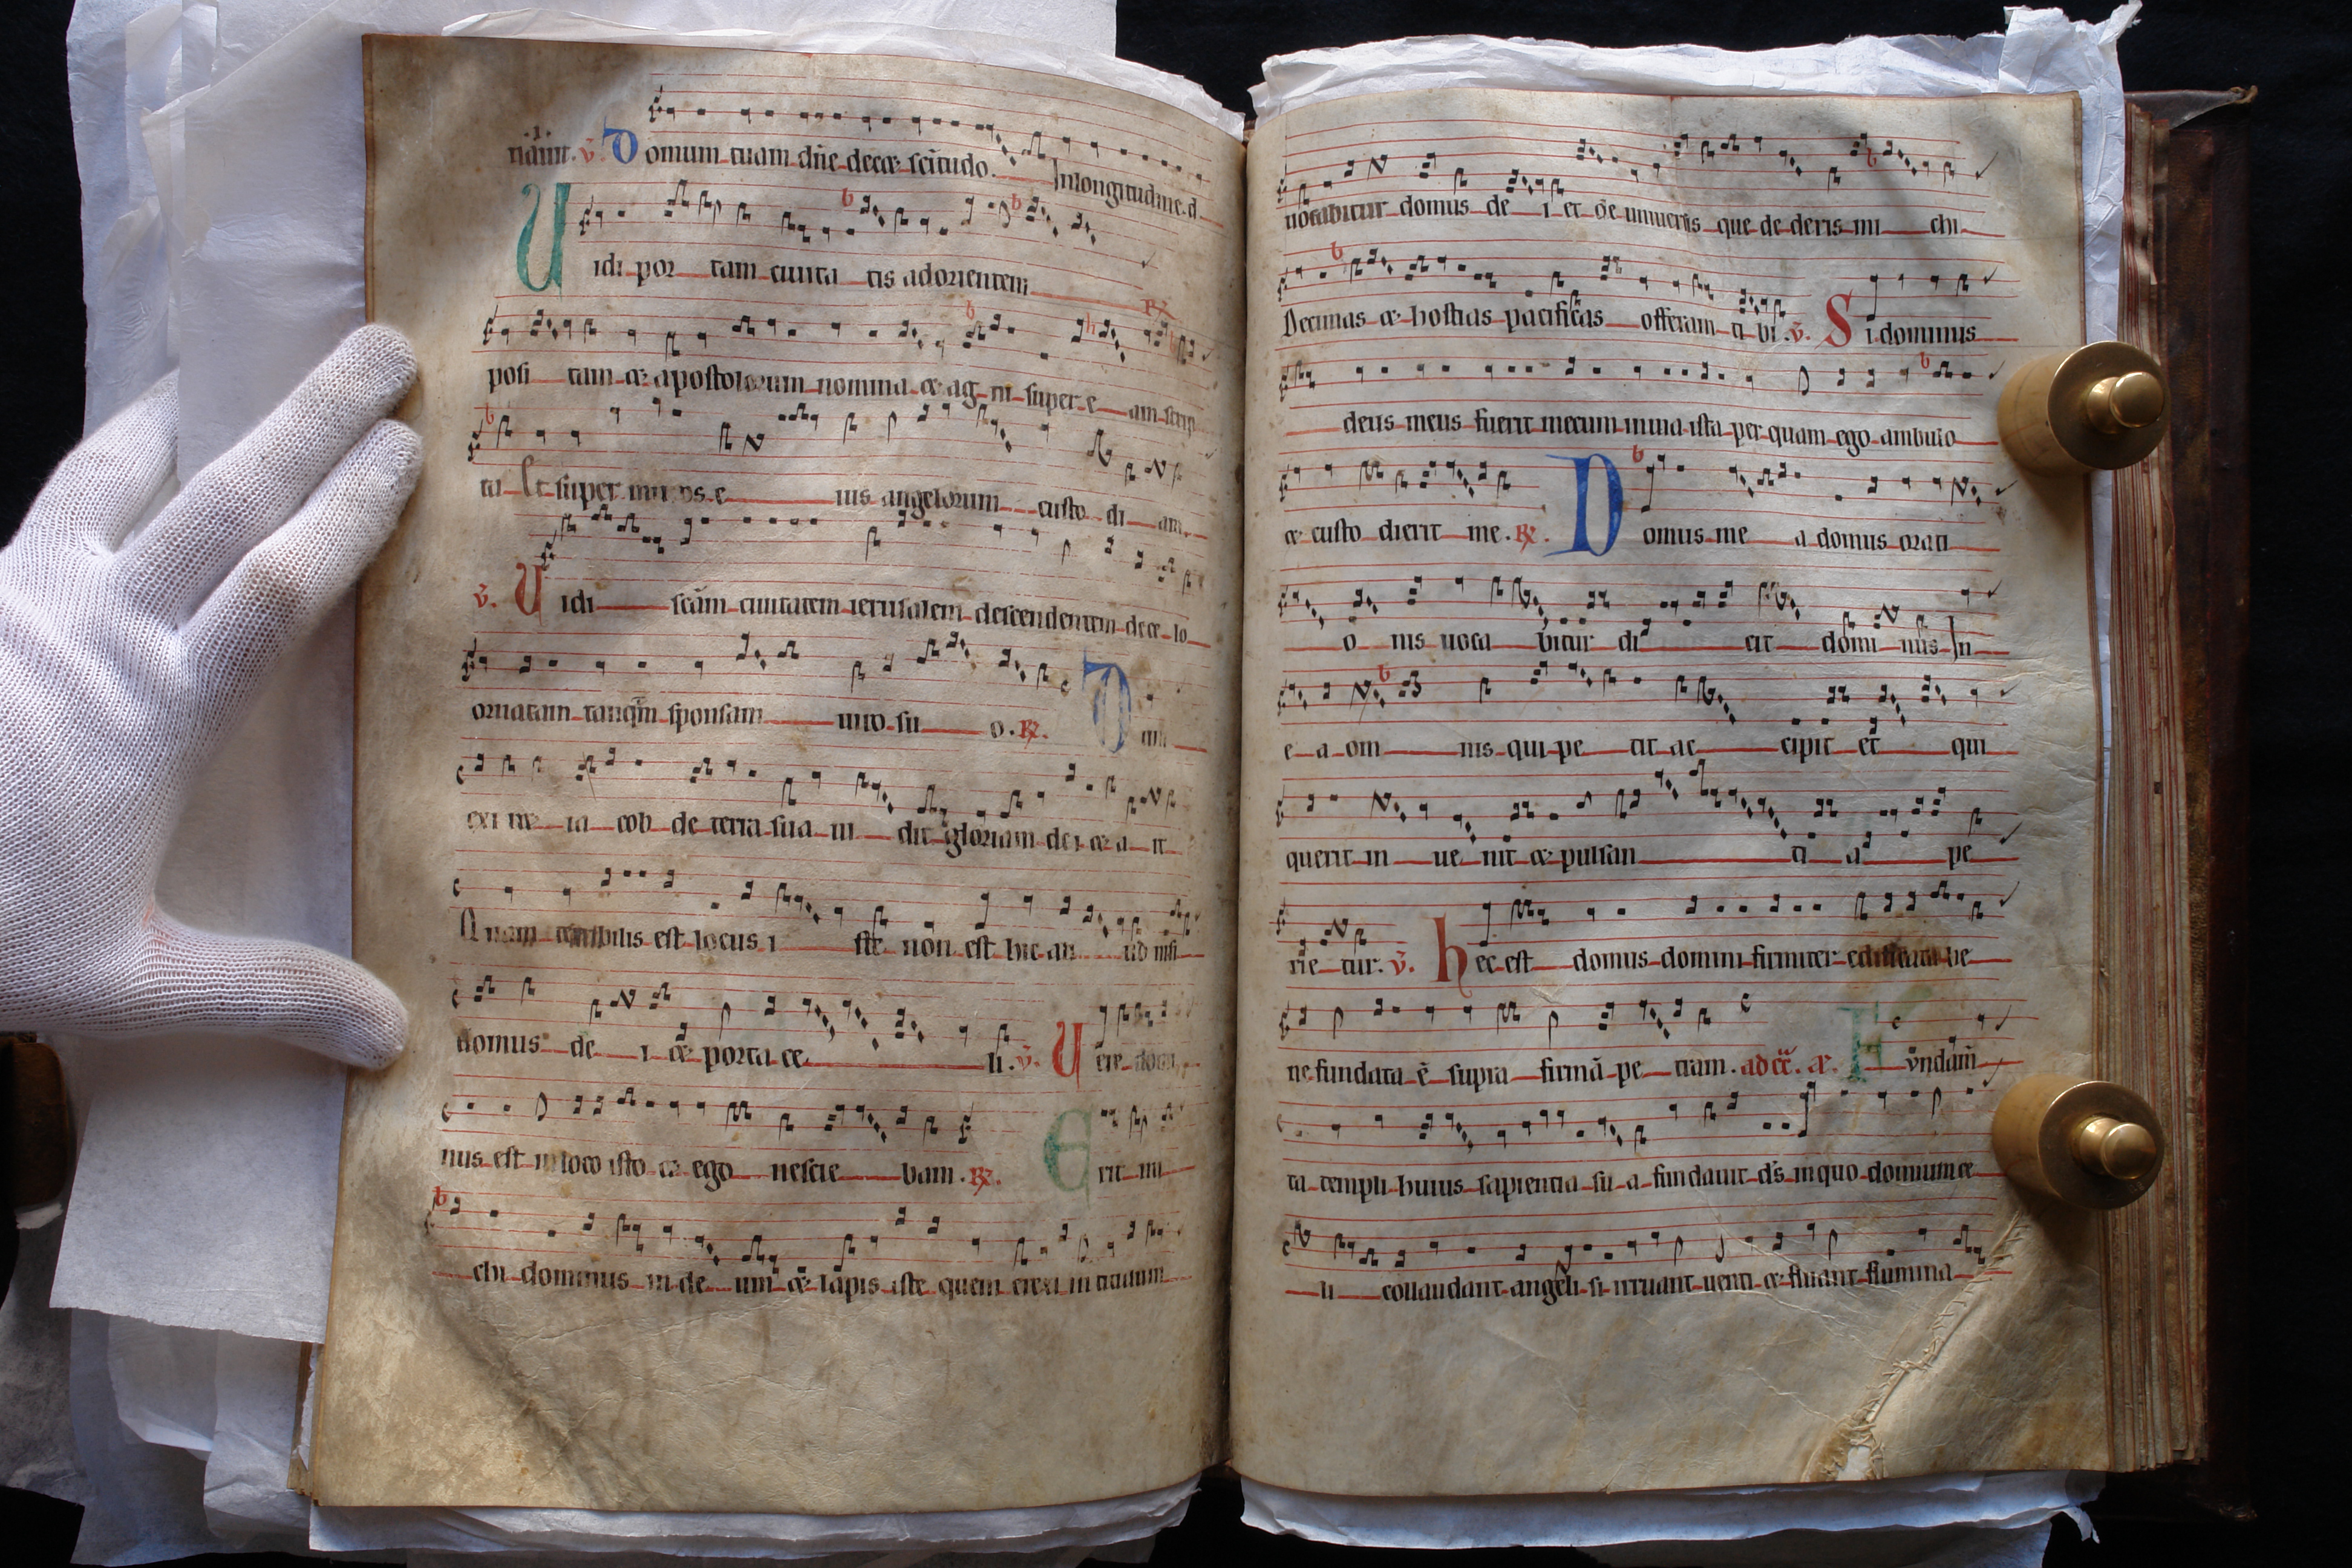 .i.
v̄. Domum tuam dn̄e decet sc̄itudo. In longitudine. d.
Uidi por tam ciuita tis ad orientem R̸
posi tam et apostolorum nomina et ag ni super e am scrip
ta Et super muros e ius angelorum custo di am.
v̄. Uidi sc̄am ciuitatem ierusalem descendentem de ce lo
ornatam tanqm̄ sponsam uiro su o. R̸.
exi ret ia cob de terra sua ui dit gloriam de i et a it
Quam terribilis est locus i ste non est hic ali ud nisi
domus de i et porta ce li. v̄. Uere domi
nus est in loco isto et ego nescie bam. R̸. Erit mi
chi dominus in de um et lapis iste quem erexi in titulum
uocabitur domus de i et de uniuersis que de deris mi chi
Decimas et hostias pacificas offeram ti bi. v̄. Si dominus
deus meus fuerit mecum in uia ista per quam ego ambulo
et custo dierit me. R̸. Domus me a domus orati
o nis uoca bitur di cit domi nus In
e a om nis qui pe tit ac cipit et qui
querit in ue nit et pulsan ti a pe
rie tur. v̄. hec est domus domini firmiter edificata be
ne fundata ē supra firmā pe tram. Fundam̄
ta templi huius sapientia su a fundauit ds̄ in quo dominum ce
li collaudant angeli si irruant uenti et fluant flumina